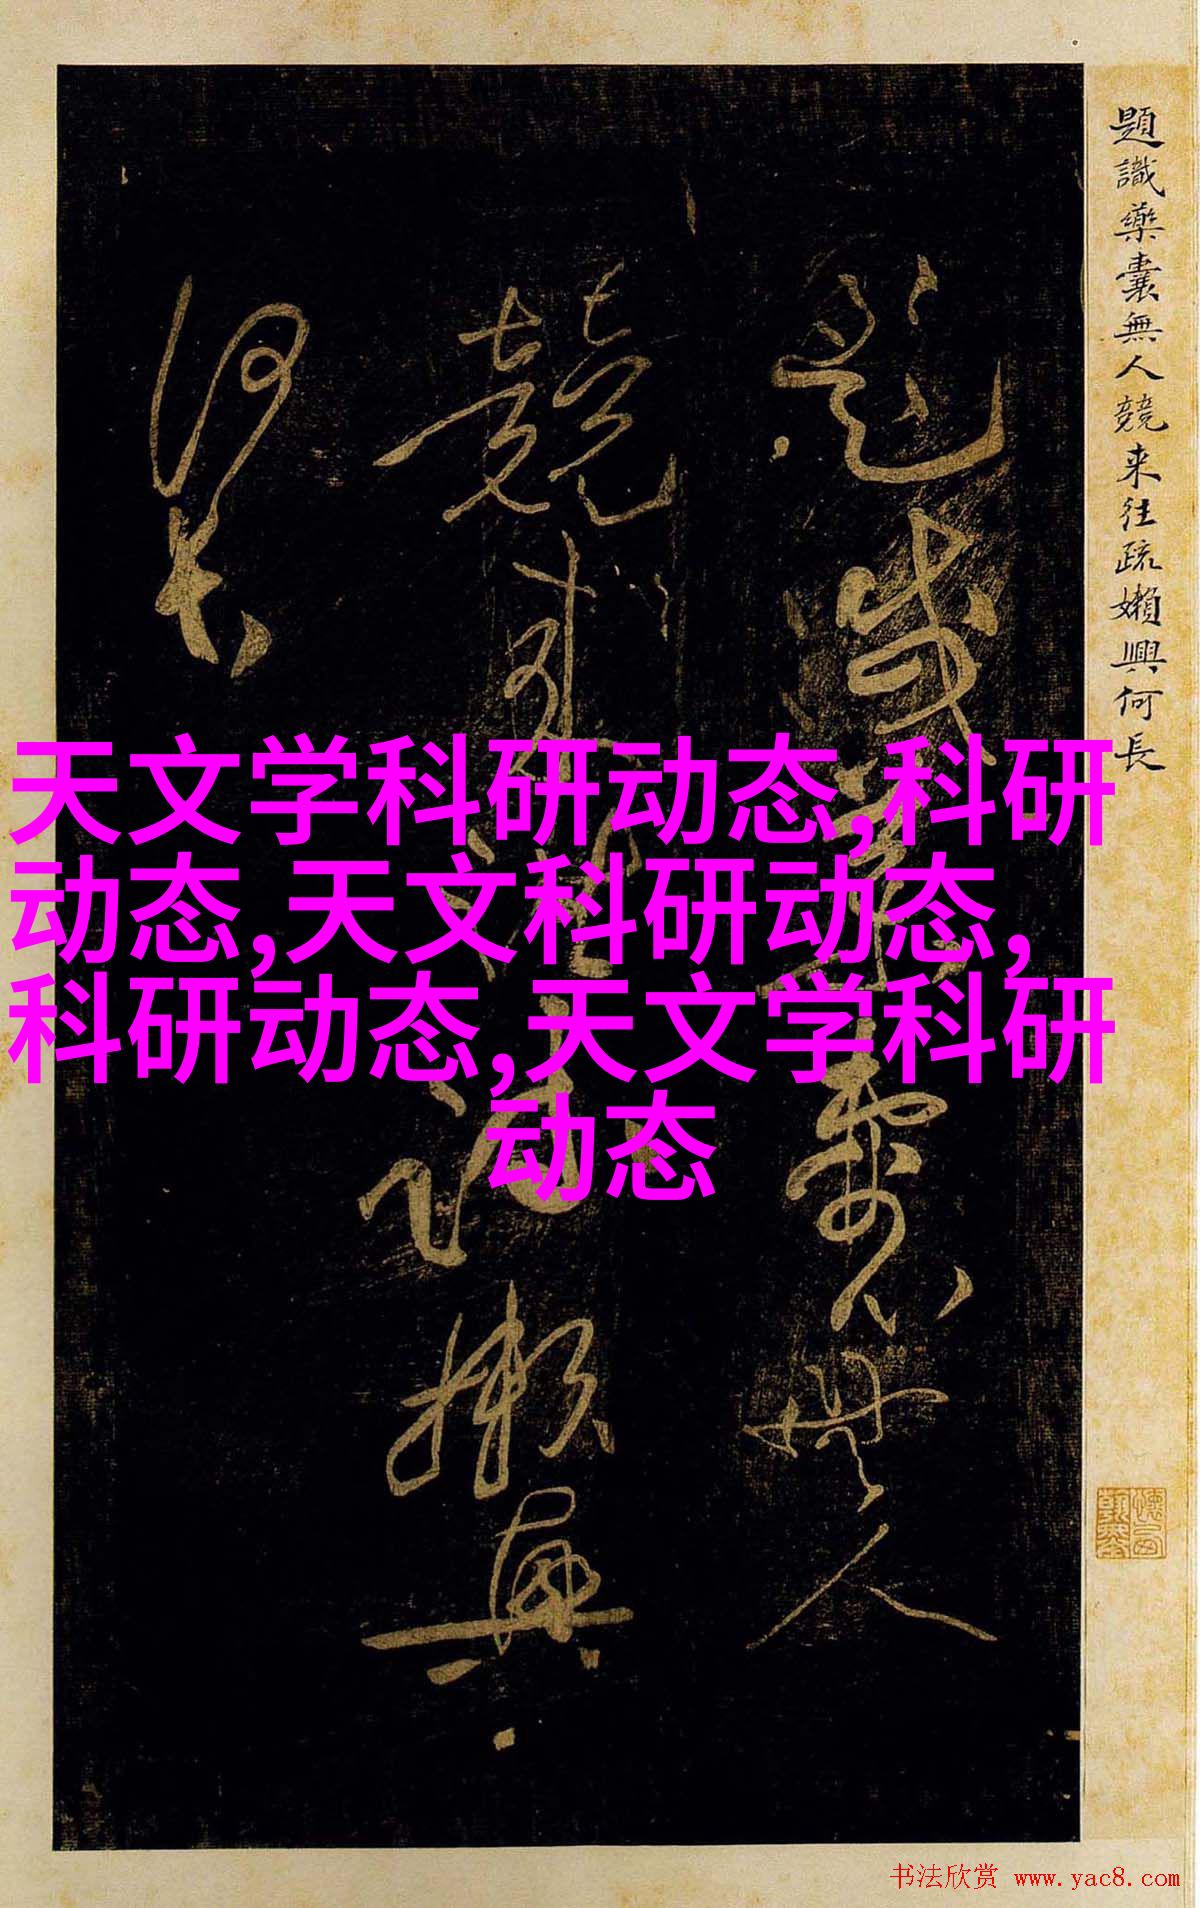 題識藥囊無人競来往疏嬾興何長
天文学科研动态,科研
动态,天文科研动态,
科研动态,天文学科研
动态
無人
競来
嬾興
何長
书法欣赏 www.yac8.com